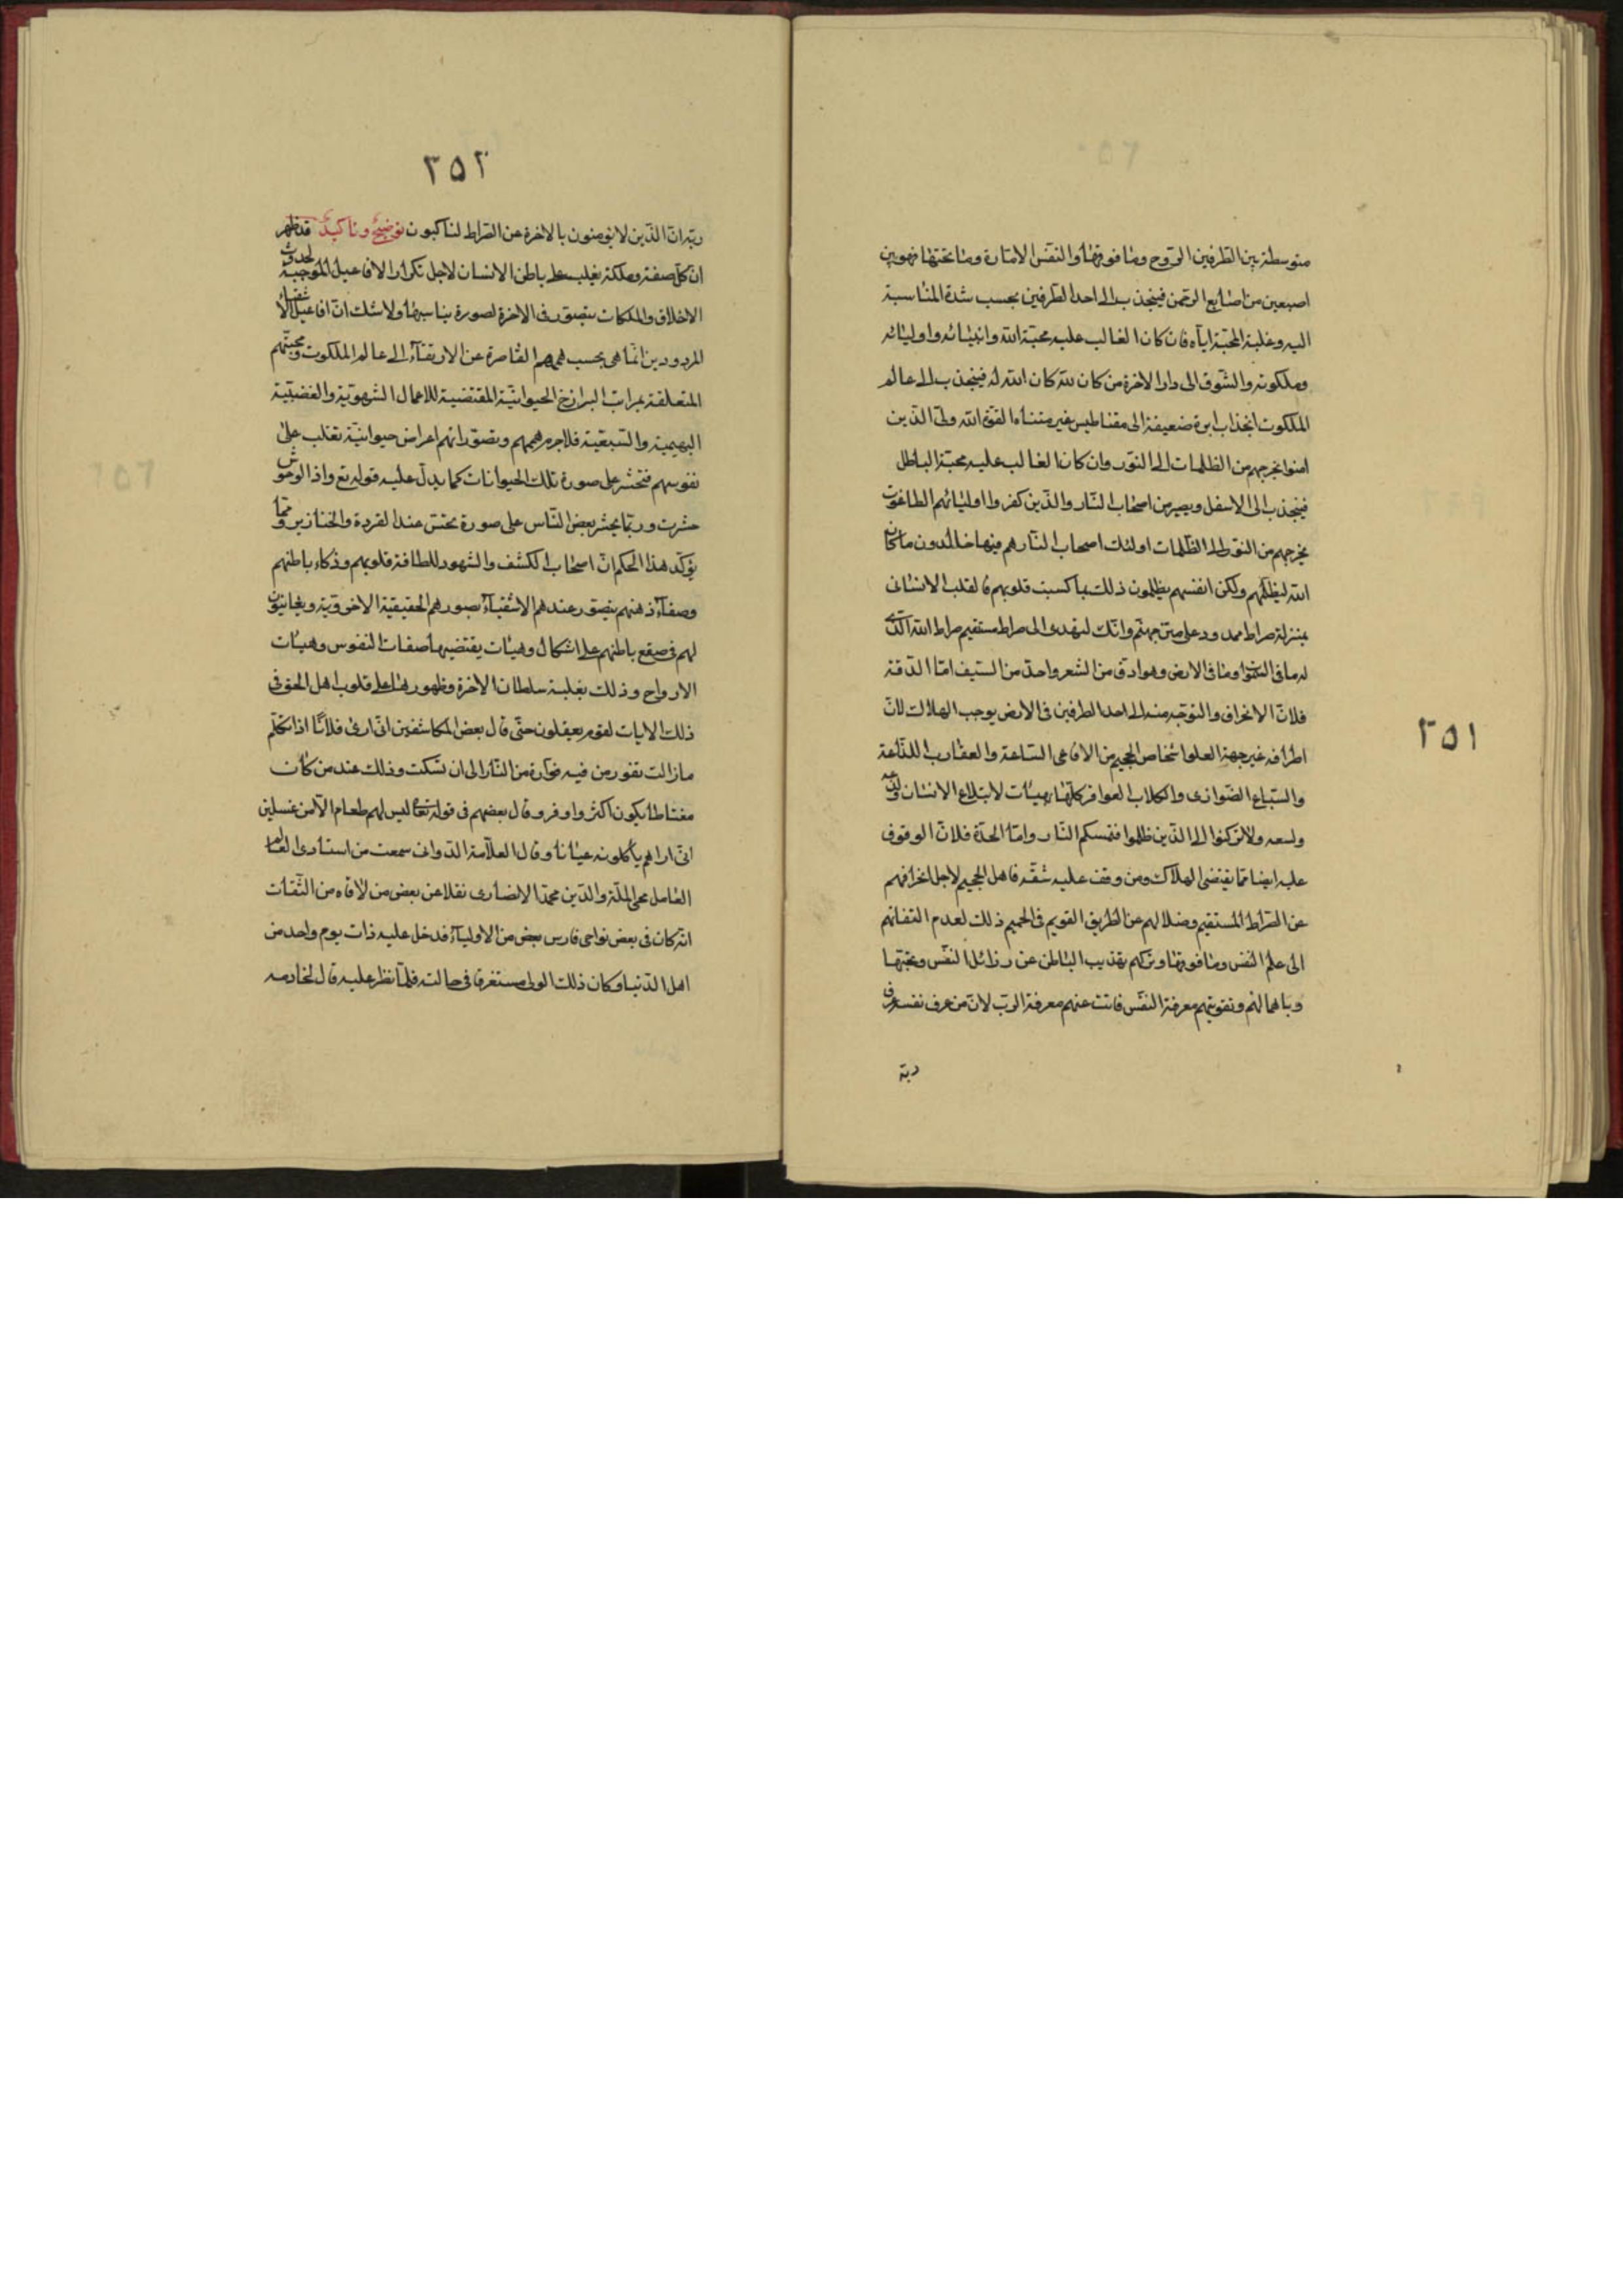 ٢٥١
متوسطة بين الطرفين الروح وما فوقها والنفس الامارة وما تحتها فهو بين
اصبعين من اصابع الرحمن فينجذب الى احد الطرفين بحسب شدة المناسبة
اليه وغلبة المحبة اياه فان كان الغالب عليه محبة الله وانبيائه واوليائه
وملكوته والشوق الى دار الاخرة من كان لله كان الله له فينجذب الى عالم
الملكوت انجذاب ابرة ضعيفة الى مقناطيس غير متناه القوة الله ولى الذين
امنوا يخرجهم من الظلمات الى النور وان كان الغالب عليه محبة الباطل
فينجذب الى الاسفل ويصير من اصحاب النار والذين كفروا اوليائهم الطاغوت
يخرجهم من النور الى الظلمات اولئك اصحاب النار هم فيها خالدون ما كان
الله ليظلمهم ولكن انفسهم يظلمون ذلك بما كسبت قلوبهم فالقلب الانسانى
بمنزلة صراط ممدود على متن جهنم وانك لتهدى الى صراط مستقيم صراط الله الذى
له ما فى السموات وما فى الارض وهو ادق من الشعر واحد من السيف اما الدقة
فلان الانحراف والتوجه منه الى احد الطرفين فى الارض يوجب الهلاك لان
اطرافه غير جهة العلو اشخاص الجحيم من الافاعى الساعة والعقارب اللذاعة
والسباع الضوارى والكلاب العواقر كلها بهيئات لابتلاع الانسان ولدغه
ولسعه ولا تركنوا الى الذين ظلموا فتمسكم النار واما الحدة فلان الوقوف
عليه ايضا مما يقتضى الهلاك ومن وقف عليه شقه فاهل الجحيم لاجل انحرافهم
عن الصراط المستقيم وضلالهم عن الطريق القويم فى الحميم ذلك لعدم التفاتهم
الى علم النفس وما فوقها وتركهم تهذيب الباطن عن رذائل النفس ومحبتها
وباهمالهم وتفويتهم معرفة النفس فاتت عنهم معرفة الرب لان من عرف نفسه عرف
ربه
٢٥٢
ربه ان الذين لا يؤمنون بالاخرة عن الصراط لناكبون توضيح وتاكيد قد ظهر
ان كل صفة وملكة يغلب على باطن الانسان لاجل تكرار الافاعيل الموجبة لحدوث
الاخلاق والملكات يتصور فى الاخرة لصورة يناسبها ولا شك ان افاعيل الاشقياء
المردودين انما هى بحسب هممهم القاصرة عن الارتقاء الى عالم الملكوت ومحبتهم
المتعلقة بمراتب البرازخ الحيوانية المقتضية للاعمال الشهوية والغضبية
البهيمية والسبعية فلاجرم هممهم وتصوراتهم اعراض حيوانية تغلب على
نفوسهم فتحشر على صورة تلك الحيوانات كما يدل عليه قوله تع واذا الوحوش
حشرت وربما يحشر بعض الناس على صورة يحسن عندا القردة والخنازير ومما
يؤكد هذا الحكم ان اصحاب الكشف والشهود للطافة قلوبهم وذكاء باطنهم
وصفاء ذهنهم يتصور عندهم الاشقياء بصورهم الحقيقية الاخروية ويعاينون
لهم فى صقع باطنهم على اشكال وهيئات يقتضيها صفات النفوس وهيئات
الارواح وذلك بغلبة سلطان الاخرة وظهورها على قلوب اهل الحق فى
ذلك لايات لقوم يعقلون حتى قال بعض المكاشفين انى ارى فلانا اذا تكلم
مازالت تفور من فيه فوارة من النار الى ان تسكت وذلك عند من كان
مغتاظا يكون اكثر واوفر وقال بعضهم فى قوله تعالى ليس لهم طعام الا من غسلين
انى اراهم ياكلونه عيانا وقال العلامة الدوانى سمعت من استادى العالم
العامل محى الملة والدين محمد الانصارى نقلا عن بعض من لاقاه من الثقات
انه كان فى بعض نواحى فارس بعض من الاولياء فدخل عليه ذات يوم واحد من
اهل الدنيا وكان ذلك الولى مستغرقا فى حالته فلما نظر عليه قال لخادمه